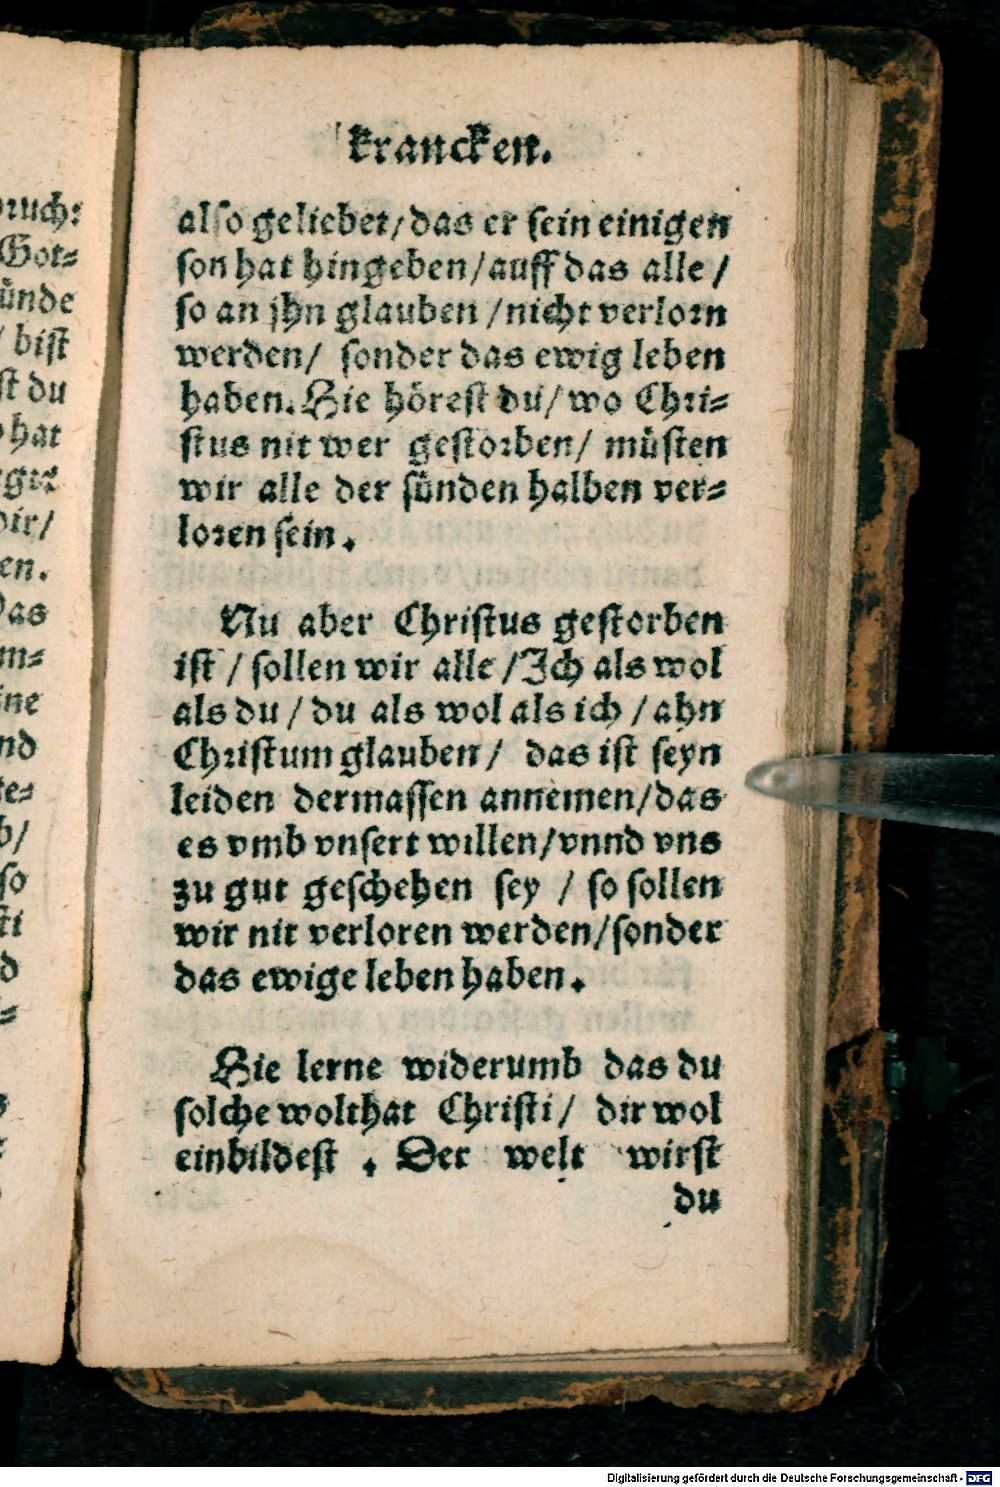 krancken.
also geliebet/das er sein einigen
son hat hingeben/auff das alle/
so an jhn glauben/nicht verlorn
werden/ sonder das ewig leben
haben. Hie hörest du/wo Chri-
stus nit wer gestorben/ müsten
wir alle der sünden halben ver-
loren sein.
Nu aber Christus gestorben
ist/sollen wir alle/Ich als wol
als du/du als wol als ich/ahn
Christum glauben/ das ist seyn
leiden dermassen annemen/das
es vmb vnsert willen/vnnd vns
zu gut geschehen sey / so sollen
wir nit verloren werden/sonder
das ewige leben haben.
Hie lerne widerumb das du
solche wolthat Christi/ dir wol
einbildest. Der welt wirst
du
ruch:
Got-
ünde
/ bist
st du
hat
dir/
en.
Das
m-
ine
nd
te-
b/
so
sti
d
Digitalisierung gefördert durch die Deutsche Forschungsgemeinschaft - DFG